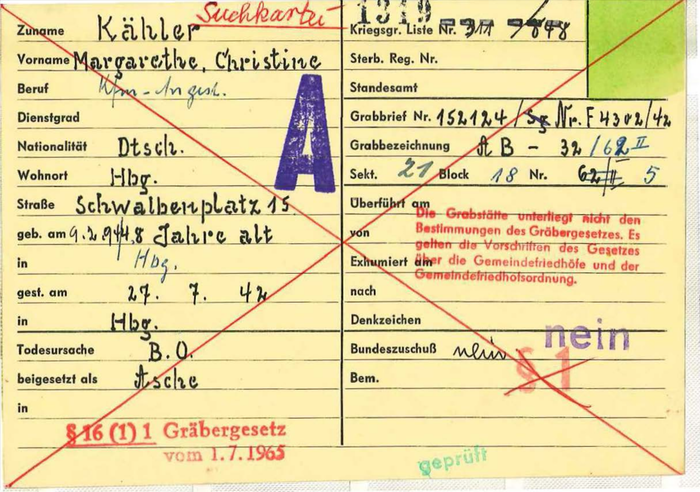 Suchkartei
1319
Zuname Kähler
Vorname Margarethe, Christine
Beruf Kfm-Angest.
Dienstgrad
Nationalität Dtsch.
Wohnort Hbg.
Straße Schwalbenplatz 15
geb. am 9.2. 48 Jahre alt
in Hbg.
gest. am 27. 7. 42
in Hbg.
Todesursache B.O.
beigesetzt als Asche
in
§ 16 (1) 1 Gräbergesetz
vom 1.7.1965
A
Kriegsgr. Liste Nr. 311
Sterb. Reg. Nr.
Standesamt
Grabbrief Nr. 152124/ Nr. F 4302/42
Grabbezeichnung A B - 32 /62 II
Sekt. 21 Block 18 Nr. 62/II 5
Überführt am
von
Exhumiert am
nach
Die Grabstätte unterliegt nicht den
Bestimmungen des Gräbergesetzes. Es
gelten die Vorschriften des Gesetzes
über die Gemeindefriedhöfe und der
Gemeindefriedhofsordnung.
Denkzeichen
nein
Bundeszuschuß nein
§ 1
Bem.
geprüft